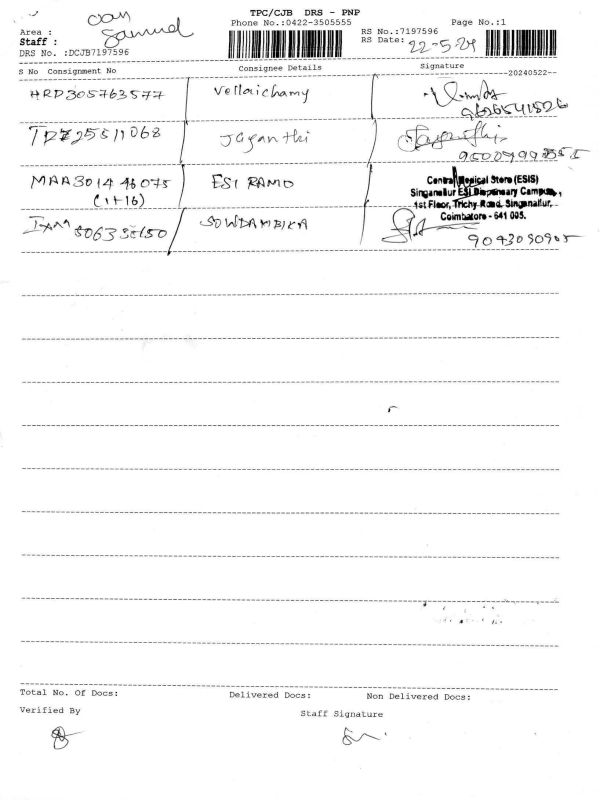 TPC/CJB DRS - PNP
Phone No.:0422-3505555
Page No.:1
Area : Van
Staff : Samuel
RS No.:7197596
RS Date: 22-5-24
DRS No. :DCJB7197596
S No Consignment No Consignee Details Signature
--20240522--
HRD305763577 Vellaichamy
9626541526
Jayanthi
MAA301446075 ESI RAMO
(1+16)
Central Medical Store (ESIS)
Singanallur ESI Dispensary Campus,
1st Floor, Trichy Road, Singanallur,
Coimbatore - 641 005.
SOWDAMBIKA
9043090905
Total No. Of Docs: Delivered Docs: Non Delivered Docs:
Verified By Staff Signature